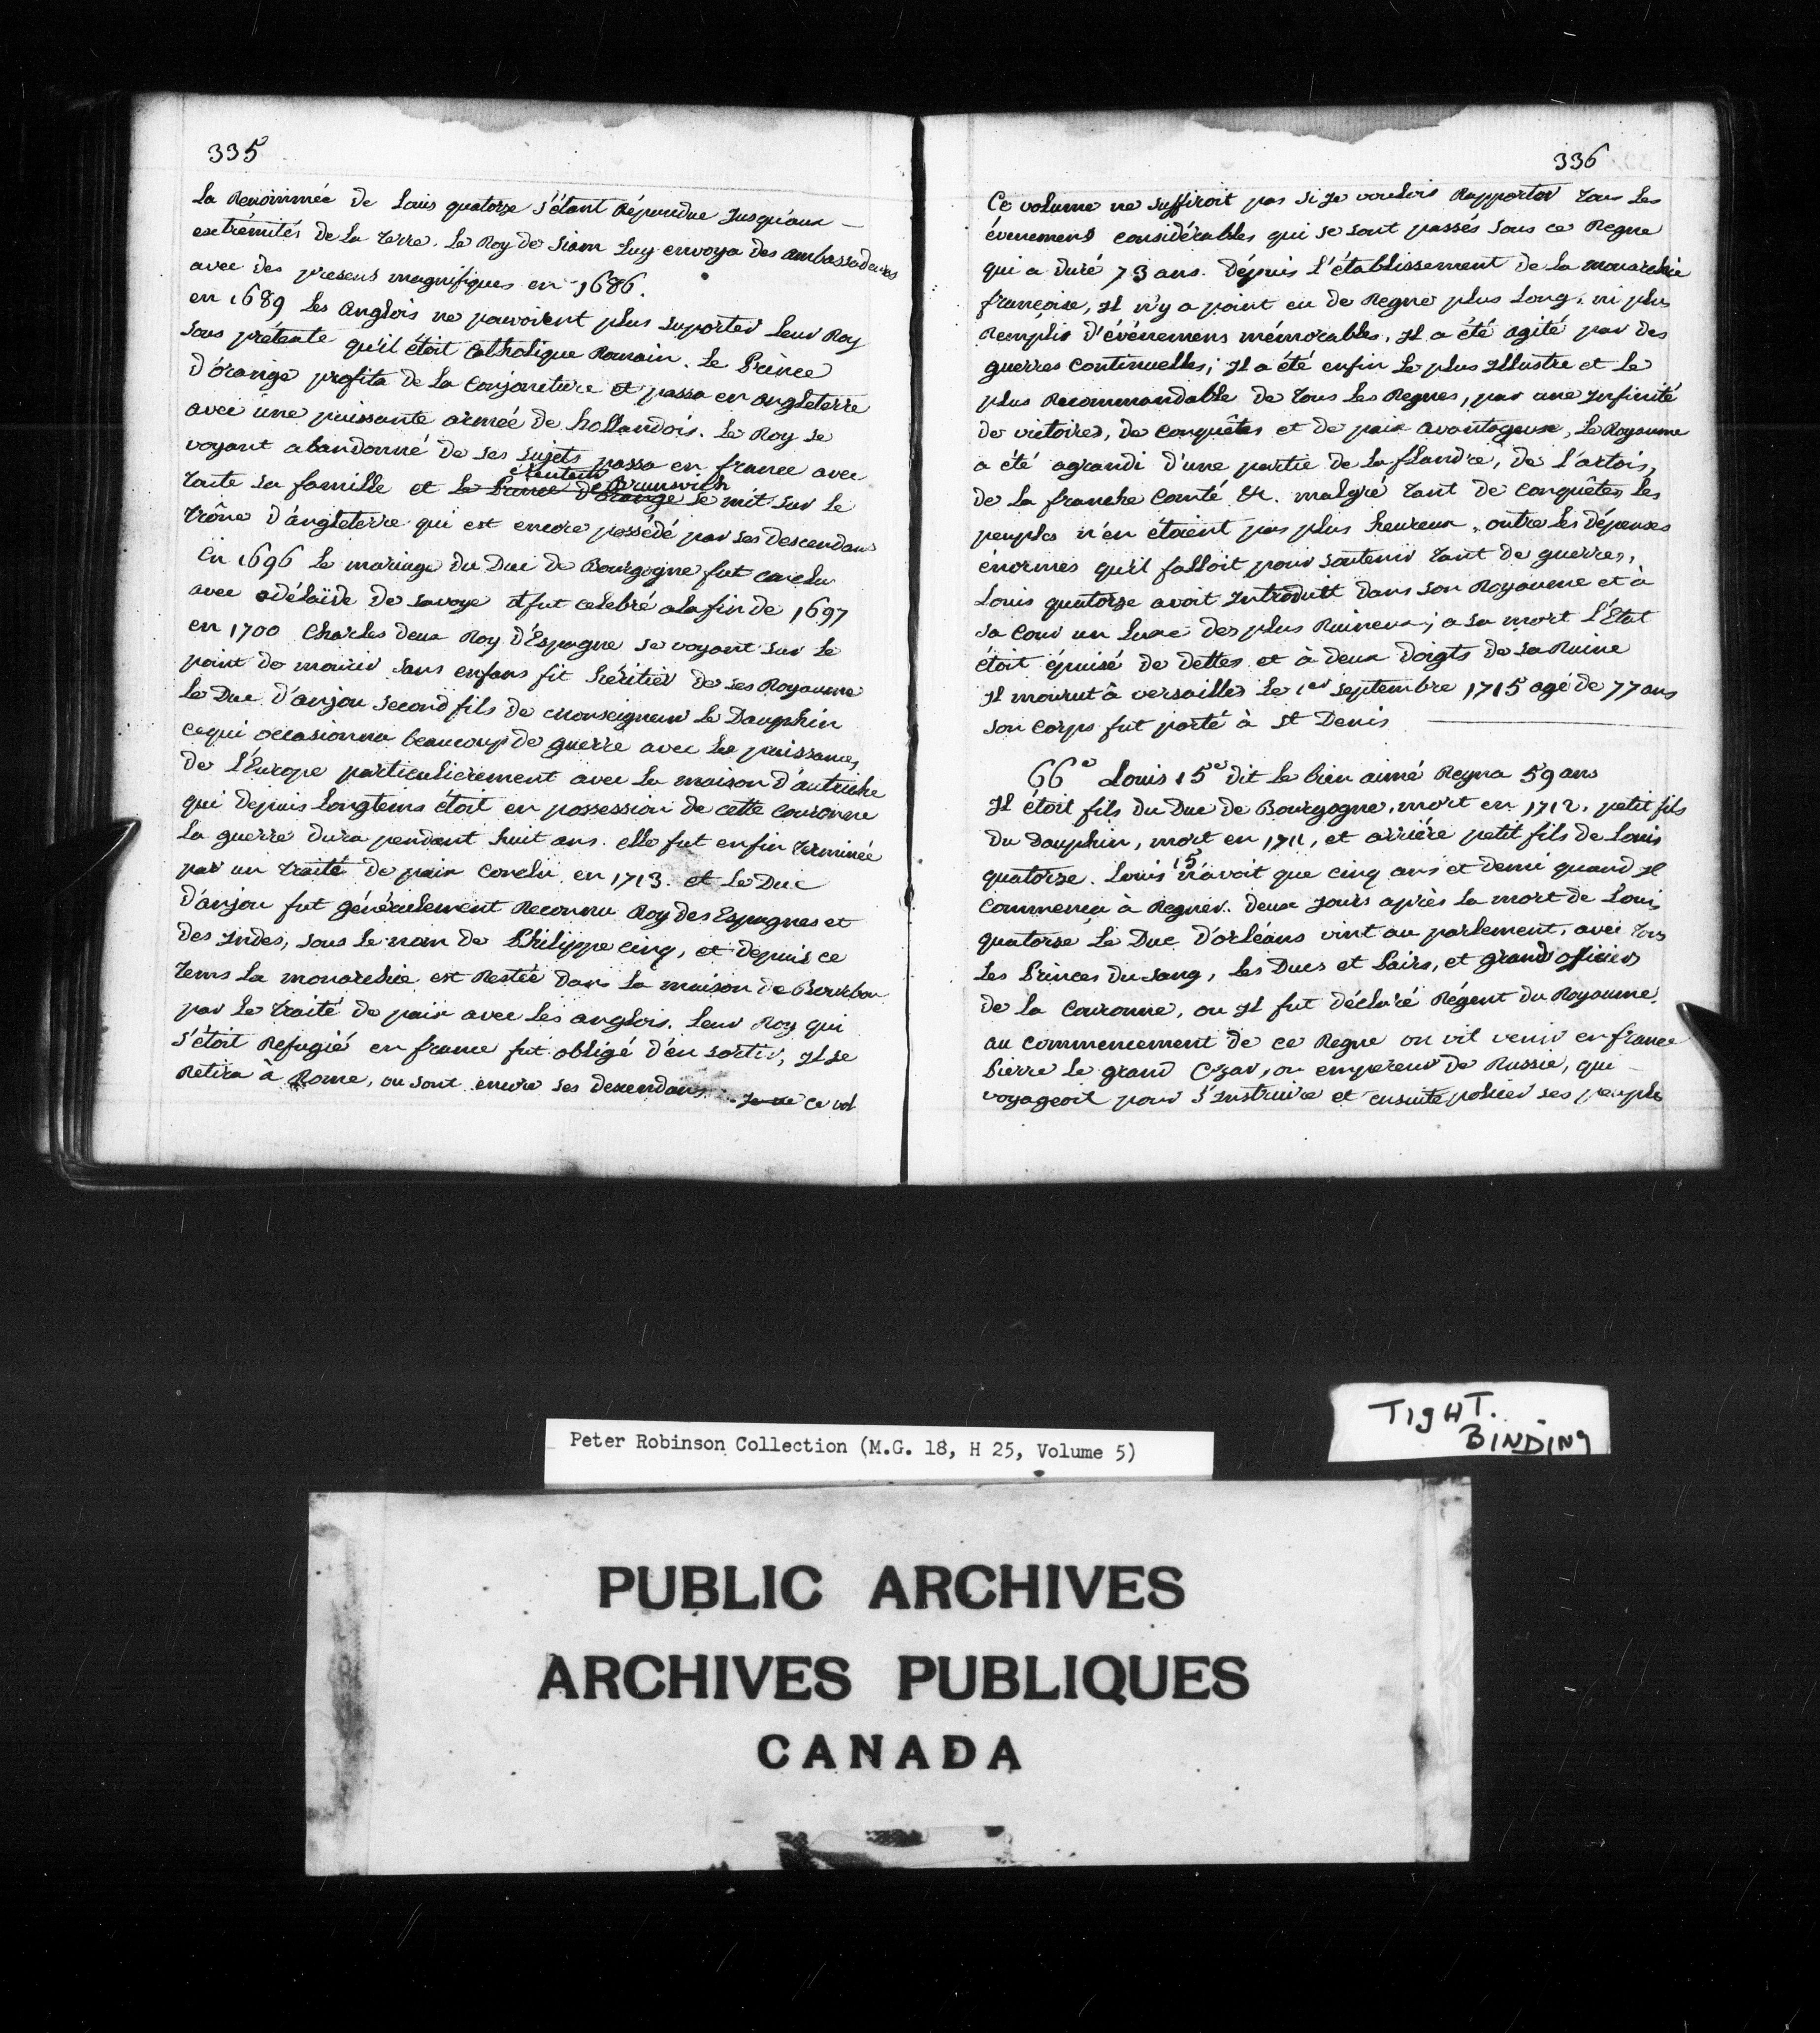 335
La Renommée de Louis quatorze s'étant Répendue Jusqu'aux
extrémités de La terre. Le Roy de Siam Luy envoya des ambassadeurs
avec des presens magnifiques en 1686.
en 1689 Les anglois ne pouvoient plus suporter Leur Roy
sous prétexte qu'il étoit Catholique Romain. Le Prince
d'orange profita de La Conjoncture et passa en angleterre
avec une puissante armée de hollandois. Le Roy se
voyant abandonné de ses sujets passa en france avec
Brunswick
toute sa famille et Le Prince d'orange se mit sur Le
trône d'angleterre qui est encore possédé par ses descendans
En 1696 Le mariage du Duc de Bourgogne fut conclu
avec adélaïde de savoye et fut celebré a la fin de 1697
en 1700 Charles deux Roy d'Espagne se voyant sur Le
point de mourir sans enfans fit héritier de ses Royaume
Le Duc d'anjou second fils de Monseigneur Le Dauphin
ce qui occasionna beaucoup de guerre avec Les puissances
de L'Europe particulierement avec La maison d'autriche
qui depuis Longtems étoit en possession de cette Couronne
La guerre dura pendant huit ans. elle fut enfin terminée
par un traité de paix conclu en 1713. et Le Duc
d'anjou fut généralement Reconnu Roy des Espagnes et
des Indes, sous Le nom de Philippe cinq, et depuis ce
tems La monarchie est Restée dans La maison de Bourbon
par Le traité de paix avec Les anglois. Leur Roy qui
s'étoit Refugié en france fut obligé d'en sortir, Il se
Retira à Rome, ou sont encore ses descendans. ce vol
336
Ce volume ne suffiroit pas si Je voulois Rapporter tous Les
évenemens considérables qui se sont passés sous ce Regne
qui a duré 73 ans. Dépuis L'établissement de La monarchie
françoise, Il n'y a point eu de Regne plus Long, ni plus
Remplis d'événemens mémorables. Il a été agité par des
guerres Continuelles; Il a été enfin Le plus Illustre et Le
plus Recommandable de tous Les Regnes, par une Infinité
de victoires, de Conquêtes et de paix avantageuse, Le Royaume
a été agrandi d'une partie de La flandre, de L'artois,
de La franche Comté &c. malgré tant de Conquêtes Les
peuples n'en étoient pas plus heureux, outre Les dépenses
énormes qu'il falloit pour soutenir tant de guerres,
Louis quatorse avoit Introduit dans son Royaume et à
sa Cour un Luxe des plus Ruineux; a sa mort L'Etat
étoit épuisé de dettes et à deux doigts de sa Ruine
Il mourut à versailles Le 1er septembre 1715 agé de 77 ans
son Corps fut porté à St Denis
66e Louis 15e dit Le bien aimé Regna 59 ans
Il étoit fils du Duc de Bourgogne, mort en 1712, petit fils
du Dauphin, mort en 1711, et arriére petit fils de Louis
quatorse. Louis 15 n'avoit que cinq ans et demi quand Il
Commença à Regner. deux Jours après La mort de Louis
quatorse Le Duc d'orléans vint au parlement, avec tous
Les Princes du sang, Les Ducs et Pairs, et grand officiers
de La Couronne, ou Il fut déclaré Régent du Royaume.
au commencement de ce Regne on vit venir en france
Pierre Le grand Czar, ou empereur de Russie, qui
voyageoit pour s'Instruire et ensuite policer ses peuples
TIgHT.
BINDINg
Peter Robinson Collection (M.G. 18, H 25, Volume 5)
PUBLIC ARCHIVES
ARCHIVES PUBLIQUES
CANADA